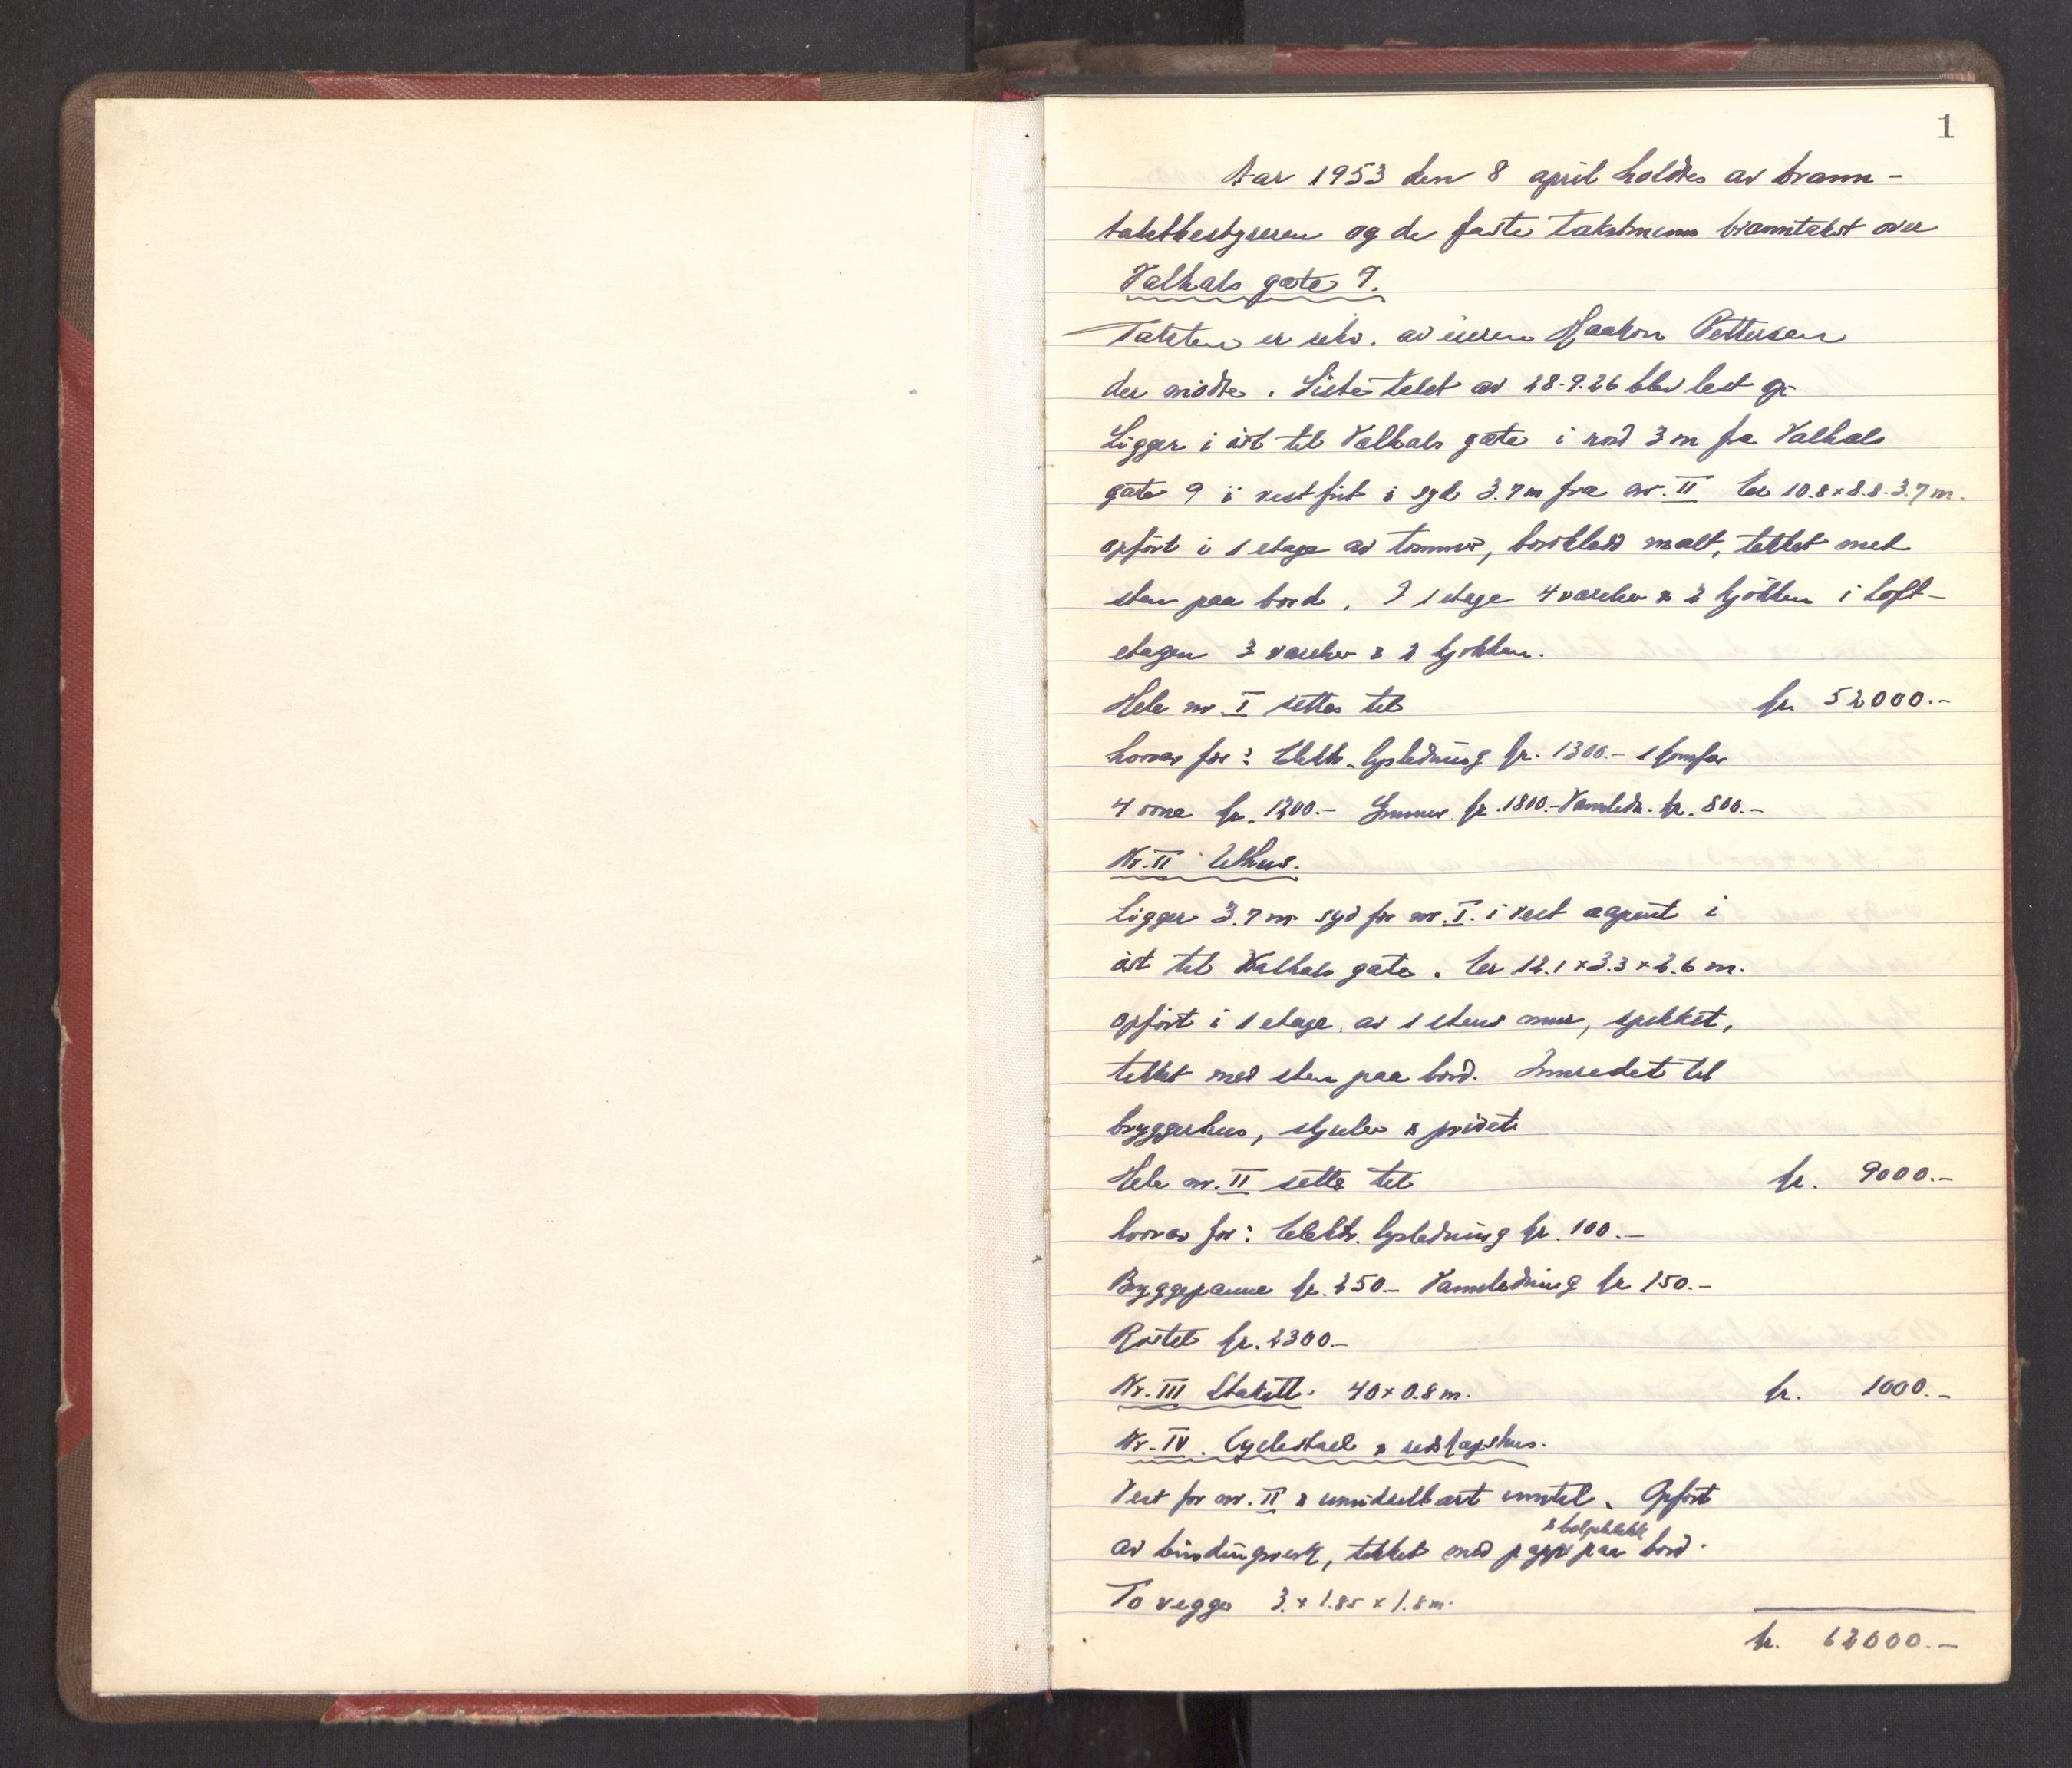 1
Aar 1953 den 8 april holdtes av brann-
takstbestyreren og de faste takstmenn branntakst over
Valhals gate 7.
Taksten er rekv. av eieren Haakon Pettersen
der mödte. Siste takst av 28.9.26 blev lest op
Ligger i öst til Valhals gate i nord 3 m fra Valhals
gate 9 i vest frit i syd 3.7 m fra nr. II Er 10.8 x 8.8. 3.7 m.
opfört i 1 etage av tömmer, bordkledd malt, tekket med
sten paa bord. I 1 etage 4 værelser & 2 kjökken i loft-
etagen 3 værelser & 2 kjökken.
Hele nr. I settes til kr. 52000.-
hvorav for: Elektr. lysledning kr. 1300.- 1 komfor
4 ovne kr. 1200.- Grunmur kr. 1800.- Vannledn. kr. 800.-
Nr. II Uthus.
Ligger 3.7 m syd for nr. I. i vest aapent i
öst til Valhals gate. Er 12.1 x 3.3 x 2.6 m.
opfört i 1 etage. av 1 stens mur, spekket,
tekket med sten paa bord. Innredet til
bryggerhus, skjuler & privet
Hele nr. II settes til kr. 9000.-
hvorav for: Elektr. lysledning kr. 100.-
Bryggepanne kr. 250.- Vannledning kr 150.-
kr. 2300.-
Nr. III Stakitt. 40 x 0.8 m. kr. 1000.-
Nr. IV. Cyclestall & redskapshus.
Vest for nr. II & umidelbart inntil. Opfört
av bindingsverk, tekket med papp paa bord.
To vegger 3. x 1.85 x 1.8 m.
kr. 62000.-